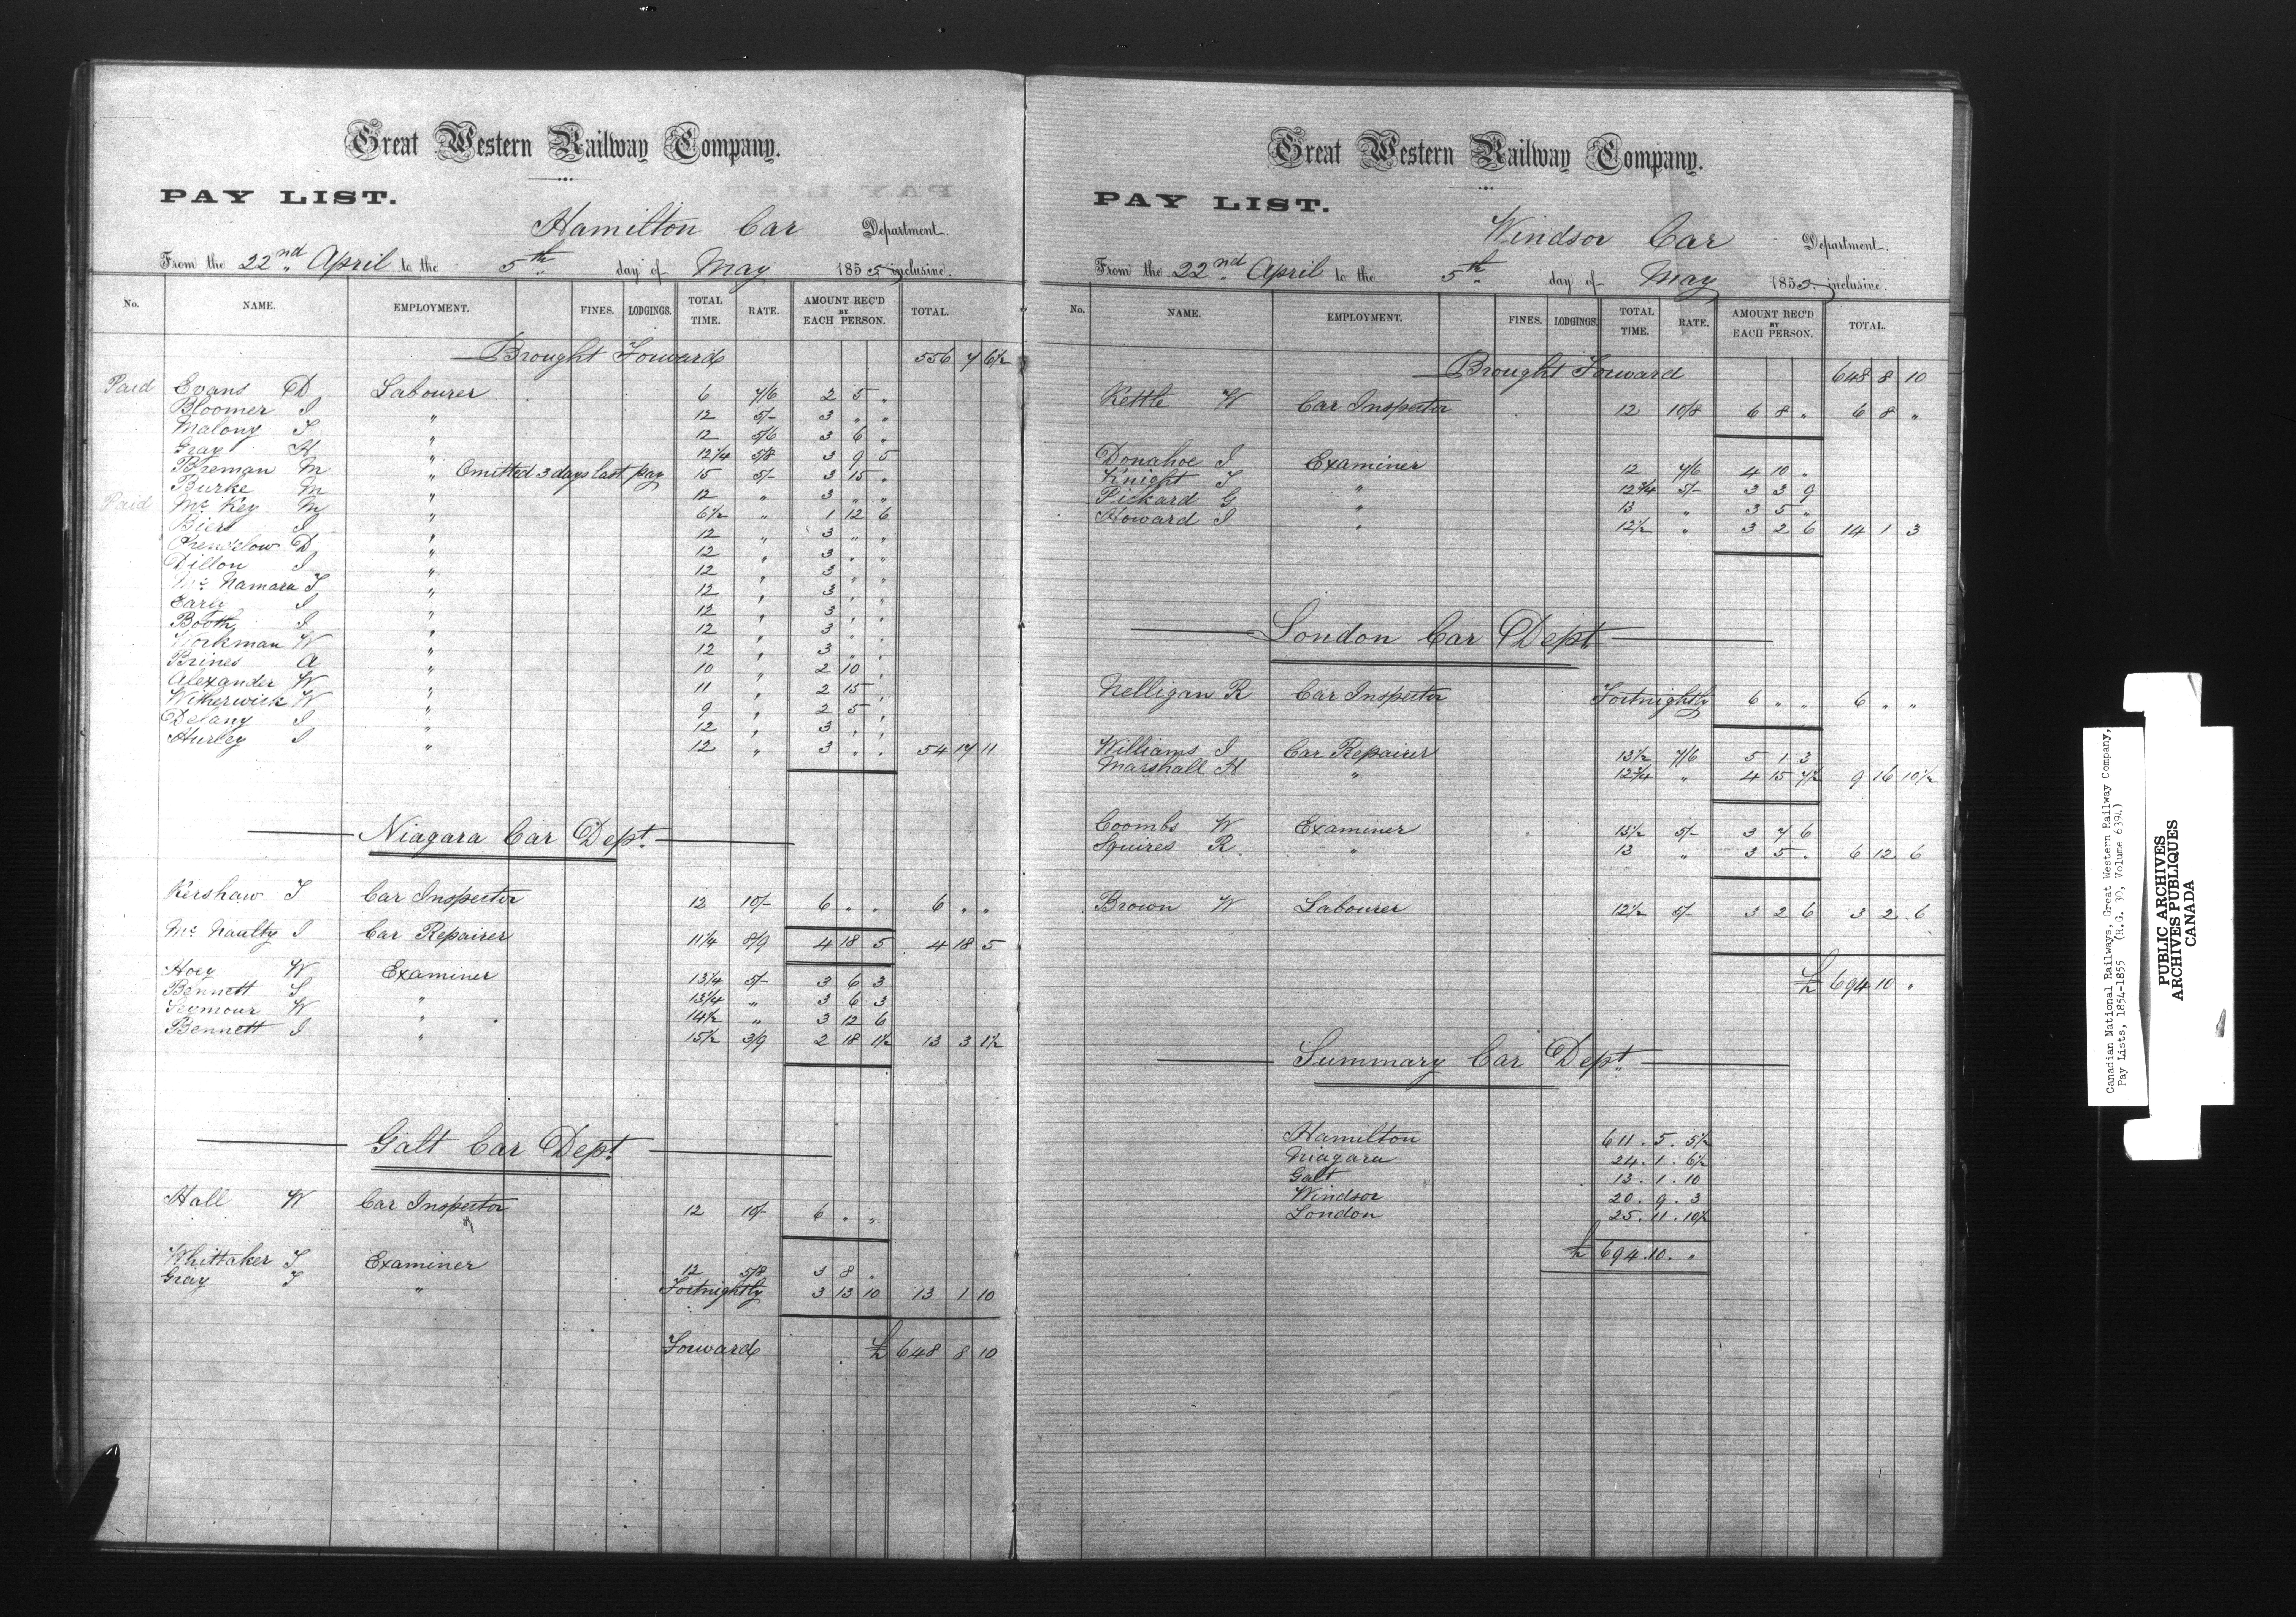 Great Western Railway Company.
PAY LIST.
Hamilton Car Department.
From the 22nd April to the 5th day of May 1855 inclusive.
No. NAME. EMPLOYMENT. FINES. LODGINGS. TOTAL TIME. RATE. AMOUNT REC'D BY EACH PERSON. TOTAL.
Brought Forward 556 7 6½
Paid Evans D Labourer 6 7/6 2 5 "
Bloomer J " 12 5/- 3 " "
Malony T " 12 5/6 3 6 "
Gray H " 12¼ 5/8 3 9 5
Breman M " Omitted 3 days last pay 15 5/- 3 15 "
Burke M " 12 " 3 " "
Paid Mc Key M " 6½ " 1 12 6
Biers J " 12 " 3 " "
D " 12 " 3 " "
Dillon J " 12 " 3 " "
Mc Namara T " 12 " 3 " "
Early J " 12 " 3 " "
Booth J " 12 " 3 " "
Workman W " 12 " 3 " "
Brines A " 10 " 2 10 "
Alexander W " 11 " 2 15 "
Witherwick W " 9 " 2 5 "
Delany J " 12 " 3 " "
Hurley J " 12 " 3 " " 54 17 11
Niagara Car Dept.
Kershaw T Car Inspector 12 10/- 6 " " 6 " "
Mc Naulty J Car Repairer 11¼ 8/9 4 18 5 4 18 5
Hoey W Examiner 13¼ 5/- 3 6 3
Bennett S " 13¼ " 3 6 3
Seymour W " 14½ " 3 12 6
Bennett J " 15½ 3/9 2 18 1½ 13 3 1½
Galt Car Dept.
Hall W Car Inspector 12 10/- 6 " "
Whittaker T Examiner 12 5/8 3 8 "
Gray T " Fortnightly 3 13 10 13 1 10
Forward £ 648 8 10
Great Western Railway Company.
PAY LIST.
Windsor Car Department.
From the 22nd April to the 5th day of May 1855 inclusive.
No. NAME. EMPLOYMENT. FINES. LODGINGS. TOTAL TIME. RATE. AMOUNT REC'D BY EACH PERSON. TOTAL.
Brought Forward 648 8 10
Kettle W Car Inspector 12 10/8 6 8 " 6 8 "
Donahoe J Examiner 12 7/6 4 10 "
Knight T " 12¾ 5/- 3 3 9
Pickard G " 13 " 3 5 "
Howard J " 12½ " 3 2 6 14 1 3
London Car Dept.
Nelligan R Car Inspector Fortnightly 6 " " 6 " "
Williams J Car Repairer 13½ 7/6 5 1 3
Marshall H " 12¾ " 4 15 7½ 9 16 10½
Coombs W Examiner 13½ 5/- 3 7 6
Squires R " 13 " 3 5 " 6 12 6
Brown W Labourer 12½ 5/- 3 2 6 3 2 6
£ 694 10 "
Summary Car Dept.
Hamilton 611 . 5 . 5½
Niagara 24 . 1 . 6½
Galt 13 . 1 . 10
Windsor 20 . 9 . 3
London 25 . 11 . 10½
£ 694 . 10 . "
Canadian National Railways, Great Western Railway Company,
Pay Lists, 1854-1855 (R.G. 30, Volume 6394)
PUBLIC ARCHIVES
ARCHIVES PUBLIQUES
CANADA